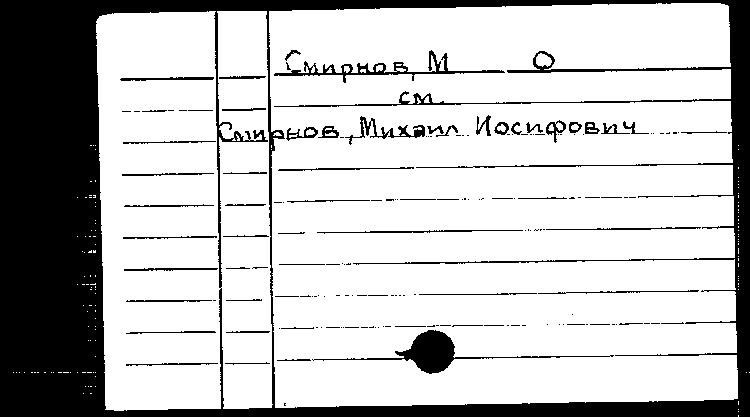 Смирнов, М О
см.
Смирнов, Михаил Иосифович